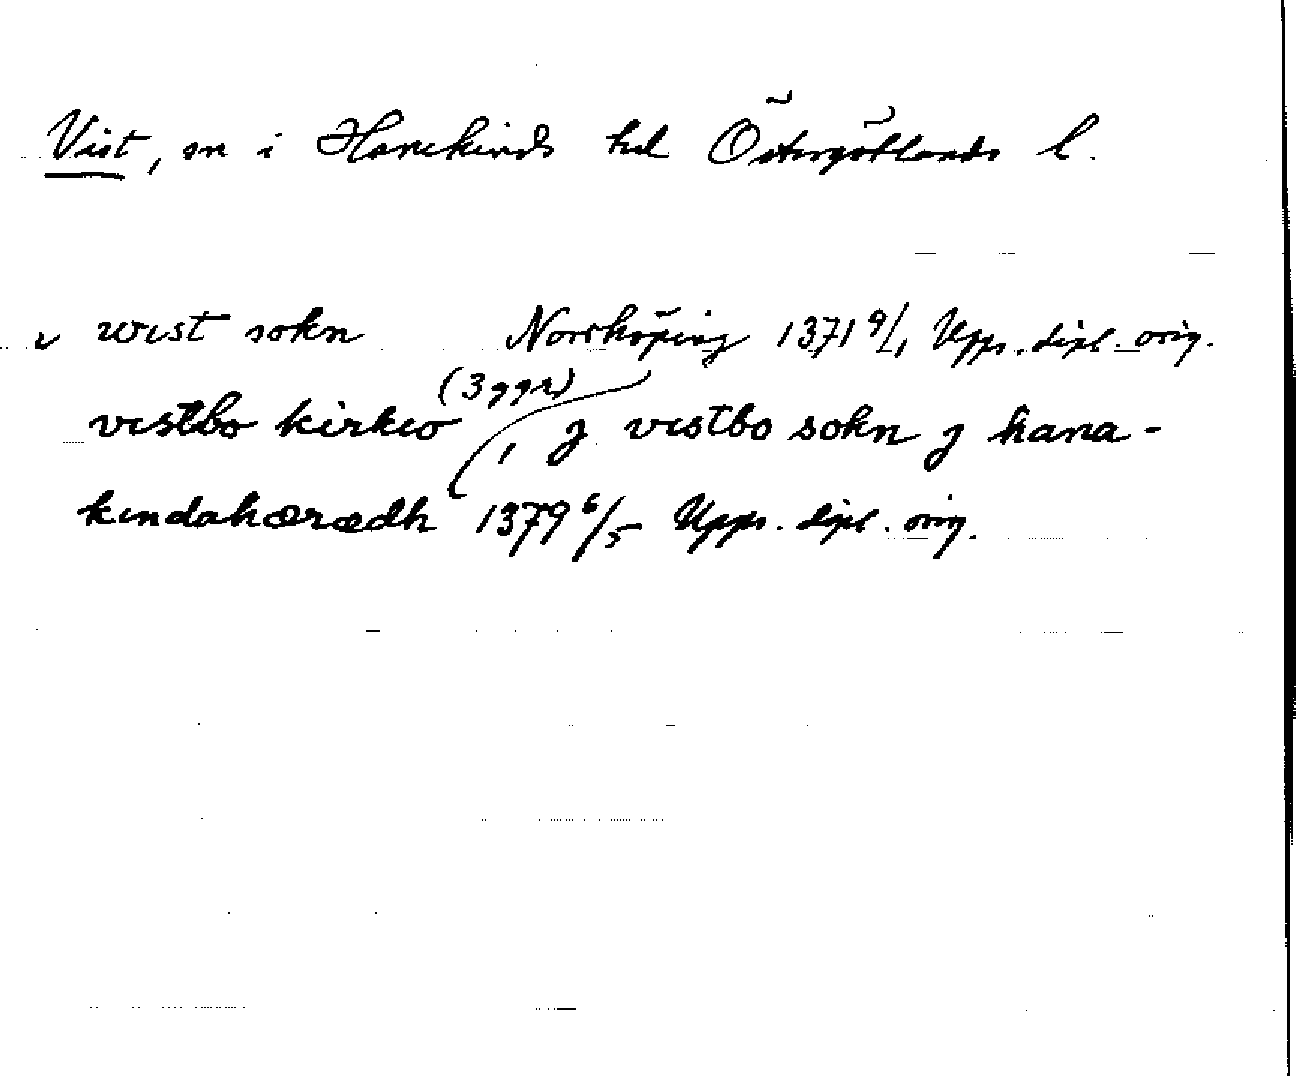 Vist, sn i Hanekinds hd Östergötlands l.
v wist sokn Norrköping 1371 9/1 Upps. dipl. orig.
(3 ggr)
vistbo kirkio, j vistbo sokn j hana-
kindahæradh 1379 6/5 Upps. dipl. orig.